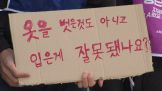 옷을 벗은것도 아니고
입은게 잘못됐나요?